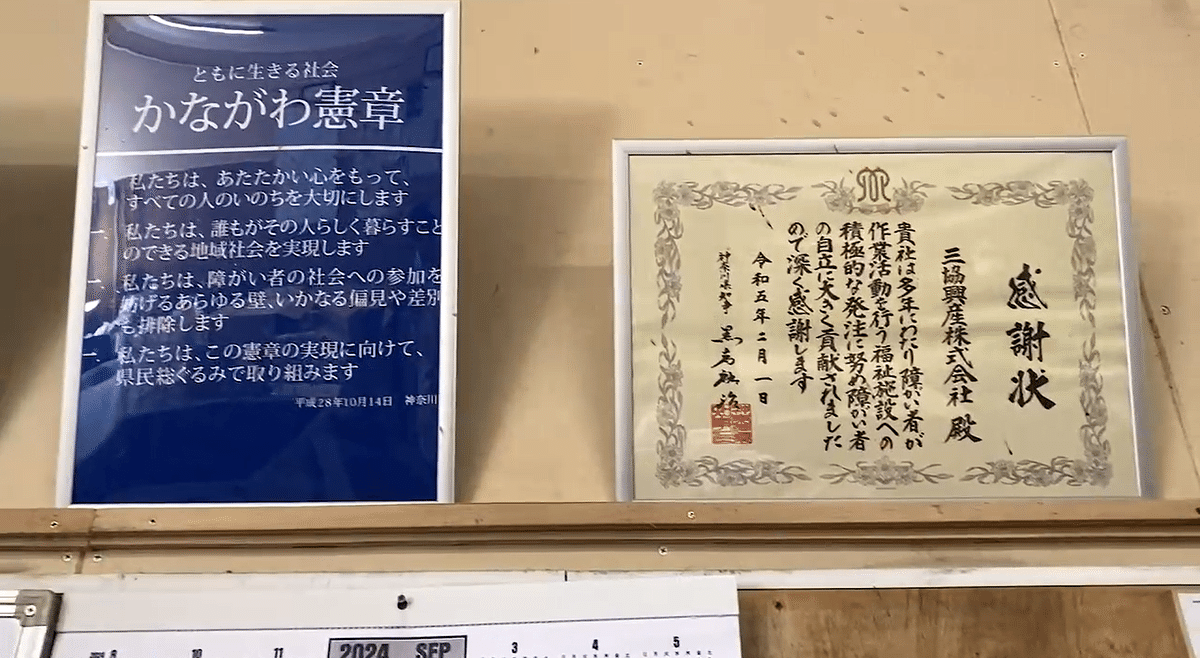 ともに生きる社会
かながわ憲章
一 私たちは、あたたかい心をもって、
すべての人のいのちを大切にします
一 私たちは、誰もがその人らしく暮らすこと
のできる地域社会を実現します
一 私たちは、障がい者の社会への参加を
妨げるあらゆる壁、いかなる偏見や差別
も排除します
一 私たちは、この憲章の実現に向けて、
県民総ぐるみで取り組みます
平成28年10月14日 神奈川
感謝状
三協興産株式会社 殿
貴社は多年にわたり障がい者が
作業活動を行う福祉施設への
積極的な発注に努め障がい者
の自立に大きく貢献されました
ので深く感謝します
令和五年二月一日
神奈川県知事 黒岩祐治
9 10 11 2024 SEP 3 4 5